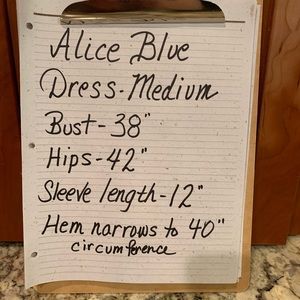 Alice Blue
Dress-Medium
Bust-38"
Hips-42"
Sleeve length-12"
Hem narrows to 40"
circumference